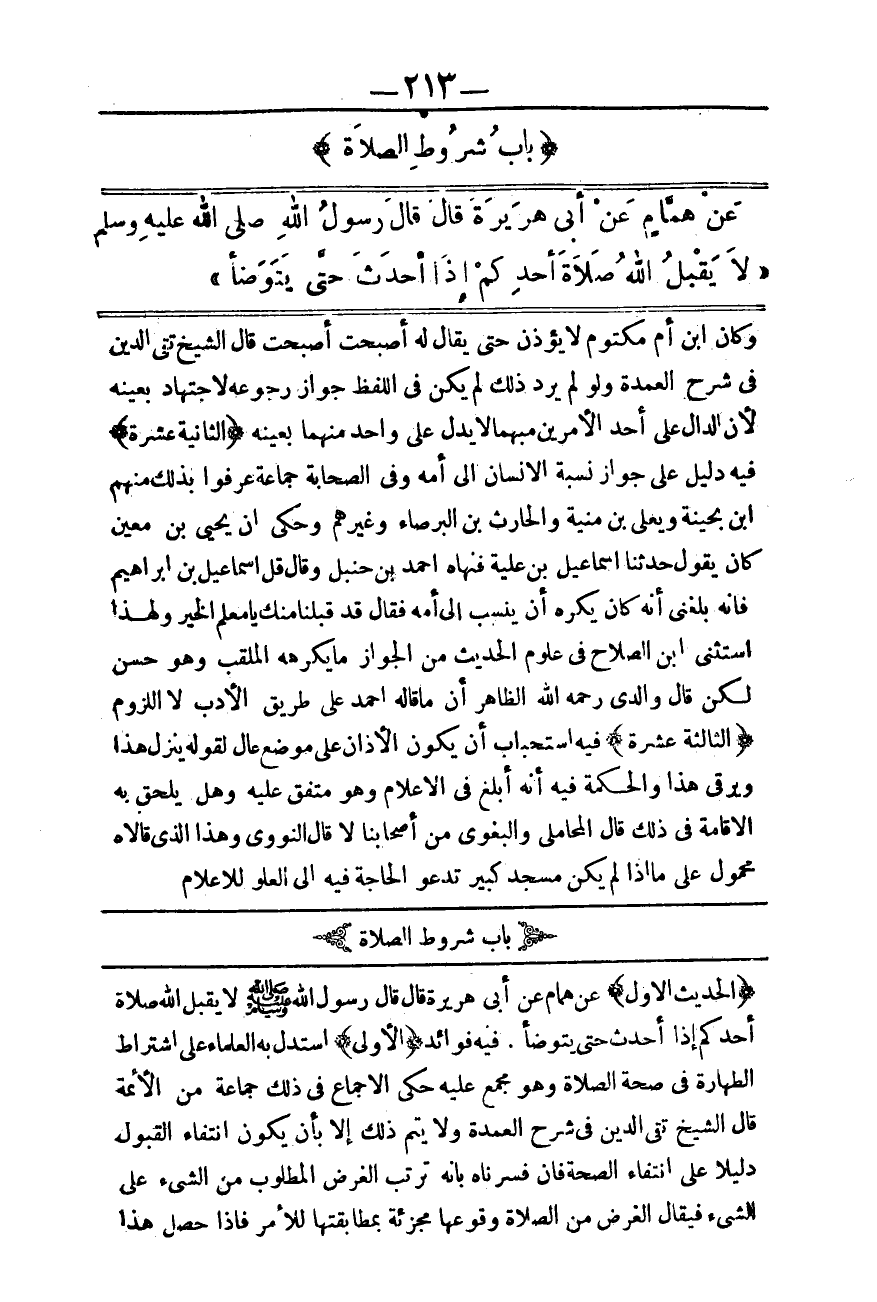 — ٢١٣ —
﴿ بَابُ شُرُوطِ الصلَاَة ﴾
عَنْ همَّامٍ عَنْ أَبى هرَيرَةَ قَالَ قَالَ رَسولُ اللهِ صلى الله عليهِ وسلم
« لاَ يَقْبلُ اللهُ صَلَاَةَ أَحدِ كمْ إِذَا أَحدَثَ حتَّى يَتَوَضأَ »
وكان ابن أم مكتوم لايؤذن حتى يقال له أصبحت أصبحت قال الشيخ تقى الدين
فى شرح العمدة ولو لم يرد ذلك لم يكن فى اللفظ جواز رجوعه لاجتهاد بعينه
لأن الدال على أحد الأمرين مبهما لايدل على واحد منهما بعينه ﴿الثانية عشرة﴾
فيه دليل على جواز نسبة الانسان الى أمه وفى الصحابة جماعة عرفوا بذلك منهم
ابن بحينة ويعلى بن منية والحارث بن البرصاء وغيرهم وحكى ان يحيى بن معين
كان يقول حدثنا اسماعيل بن علية فنهاه احمد بن حنبل وقال قل اسماعيل بن ابراهيم
فانه بلغنى أنه كان يكره أن ينسب الى أمه فقال قد قبلنا منك يا معلم الخير ولهـذا
استثنى ابن الصلاح فى علوم الحديث من الجواز مايكرهه الملقب وهو حسن
لـكن قال والدى رحمه الله الظاهر أن ماقاله احمد على طريق الأدب لا اللزوم
﴿ الثالثة عشرة ﴾ فيه استحباب أن يكون الأذان على موضع عال لقوله ينزل هذا
ويرقى هذا والحـكمة فيه أنه أبلغ فى الاعلام وهو متفق عليه وهل يلحق به
الاقامة فى ذلك قال المحاملى والبغوى من أصحابنا لا قال النووى وهذا الذى قالاه
محمول على مااذا لم يكن مسجد كبير تدعو الحاجة فيه الى العلو للاعلام
باب شروط الصلاة
﴿الحديث الاول﴾ عن همام عن أبى هريرة قال قال رسول الله ﷺ لا يقبل الله صلاة
أحدكم إذا أحدث حتى يتوضأ . فيه فوائد ﴿الأولى﴾ استدل به العلماء على اشتراط
الطهارة فى صحة الصلاة وهو مجمع عليه حكى الاجماع فى ذلك جماعة من الأئمة
قال الشيخ تقى الدين فى شرح العمدة ولا يتم ذلك إلا بأن يكون انتفاء القبول
دليلا على انتفاء الصحة فان فسرناه بانه ترتب الغرض المطلوب من الشىء على
الشىء فيقال الغرض من الصلاة وقوعها مجزئة بمطابقتها للأمر فاذا حصل هذا